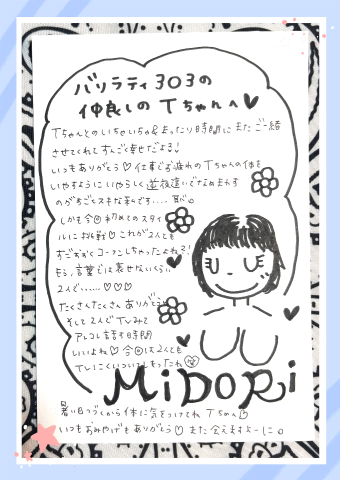 バリラティ303の
仲良しの Tちゃんへ♥
Tちゃんとのいちゃいちゃ&まったり時間に またご一緒
させてくれてすんごく幸せだよる!
いつもありがとう♡仕事でお疲れのTちゃんの体を
いやすように いやらしく逆夜這いでなめまわす
のがちごくスキな私です.... 恥。
しかも今回初めてのスタイ
ルに挑戦♡これが2人とも
すごおおくコーフンしちゃったよね?!
もう、言葉では表せないくらい
2人で...... ♡♡♡
たくさんたくさん ありがとう
そして2人でTVみて
アレコレ話す時間
いいよね♡ 今回は2人とも
TVにくいついてしまったわ
MiDORi
暑い日つづくから体に気をつけてね Tちゃん
いつもおみやげもありがとう♡ また会えますよーに。